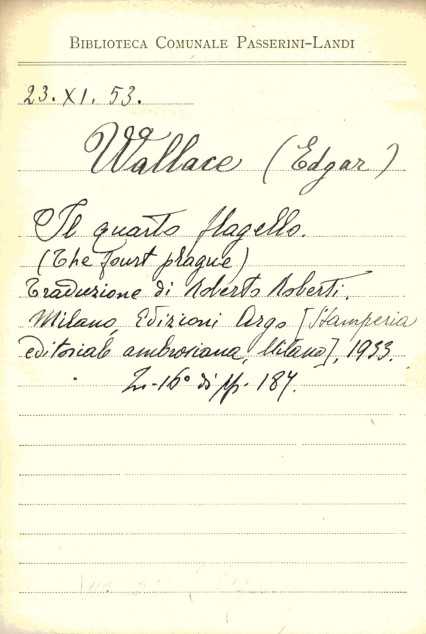 BIBLIOTECA COMUNALE PASSERINI-LANDI
23. XI. 53.
Wallace (Edgar)
Il quarto flagello.
(The fourt plague)
Traduzione di Roberto Roberti.
Milano, Edizioni Argo [Stamperia
editoriale ambrosiana, Milano], 1933.
In-16° di pp. 187.